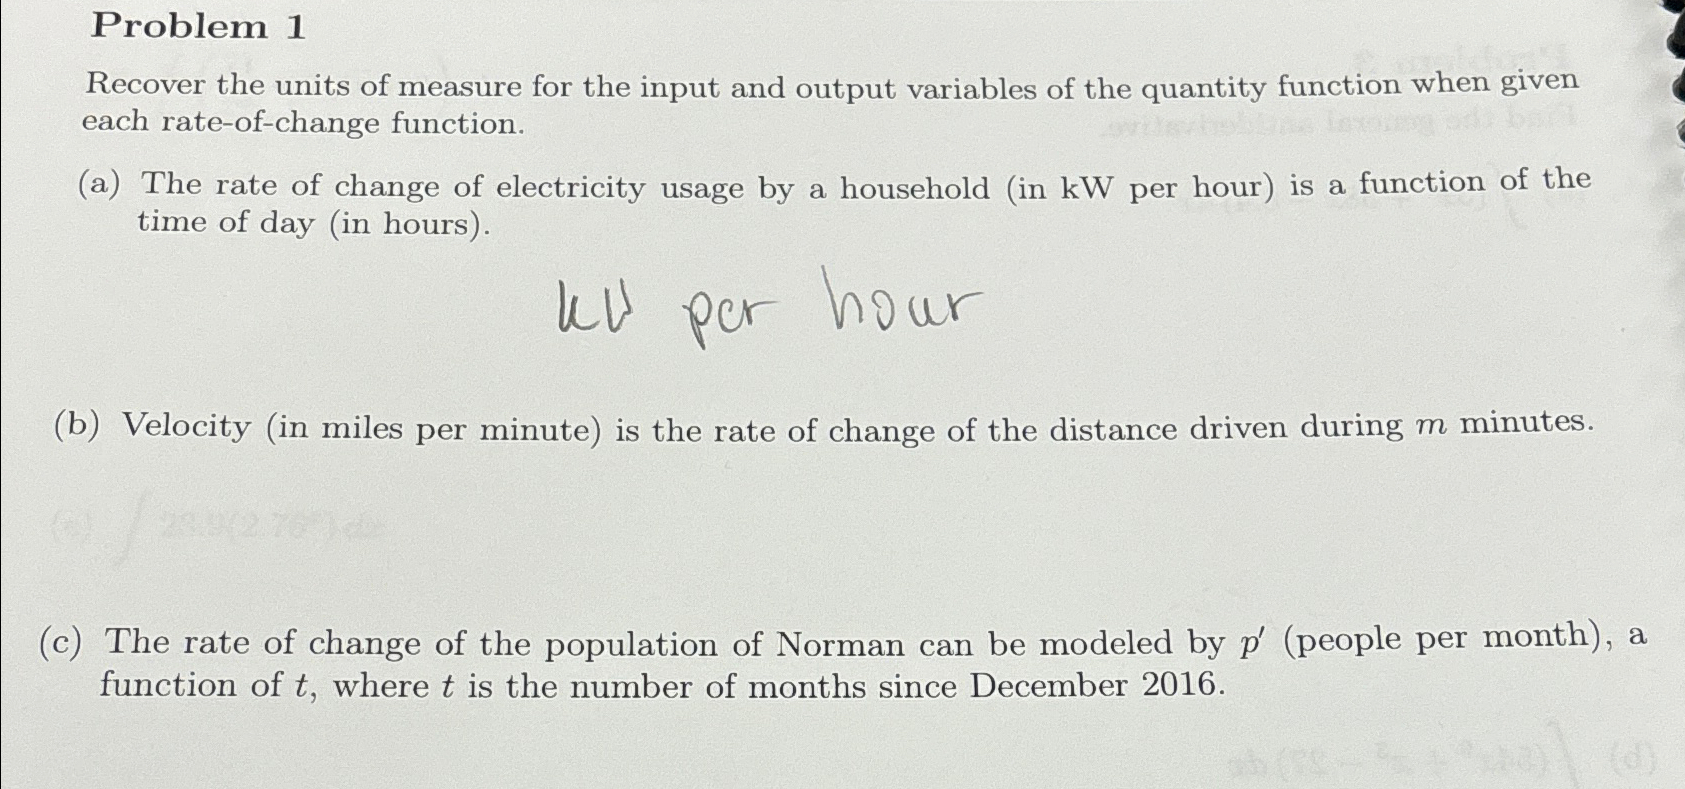 Problem 1
Recover the units of measure for the input and output variables of the quantity function when given
each rate-of-change function.
(a) The rate of change of electricity usage by a household (in kW per hour) is a function of the
time of day (in hours).
kW per hour
(b) Velocity (in miles per minute) is the rate of change of the distance driven during m minutes.
(c) The rate of change of the population of Norman can be modeled by p′ (people per month), a
function of t, where t is the number of months since December 2016.